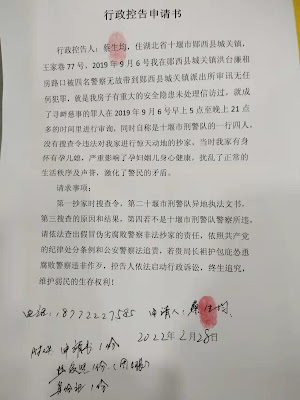 行政控告申请书
行政控告人：蔡生均，住湖北省十堰市郧西县城关镇，
王家巷77号。2019年9月6号我在郧西县城关洪台廉租
房路口被四名警察无故带到郧西县城关镇派出所审讯无任
何犯罪，就是我房子有重大的安全隐患未处理信访过，就成
了寻衅慈事的罪人在2019年9月6号早上5点至晚上21点
多的时间里进行审询，同时自称是十堰市刑警队的一行四人，
没有搜查令违法对我家进行惊天动地的抄家。当时我家有身
怀有孕儿媳，严重影响了孕妇婴儿身心健康。扰乱了正常的
生活秩序及声誉，激化了警民的矛盾。
请求事项：
第一抄家时搜查令。第二十堰市刑警队异地执法文书。
第三搜查的原因和结果。第四若不是十堰市刑警队警察所违，
请依法查出假冒伪劣腐败警察非法抄家的责任，依照共产党
的纪律处分条例和公安警察法追责，若贵局长袒护包庇怂恿
腐败警察违非作歹，控告人依法启动行政诉讼，终生追究，
维护弱民的生存权利！
电话：18772227585 申请人：蔡生均
2022年2月28日
附：申请书1份
身份证1份